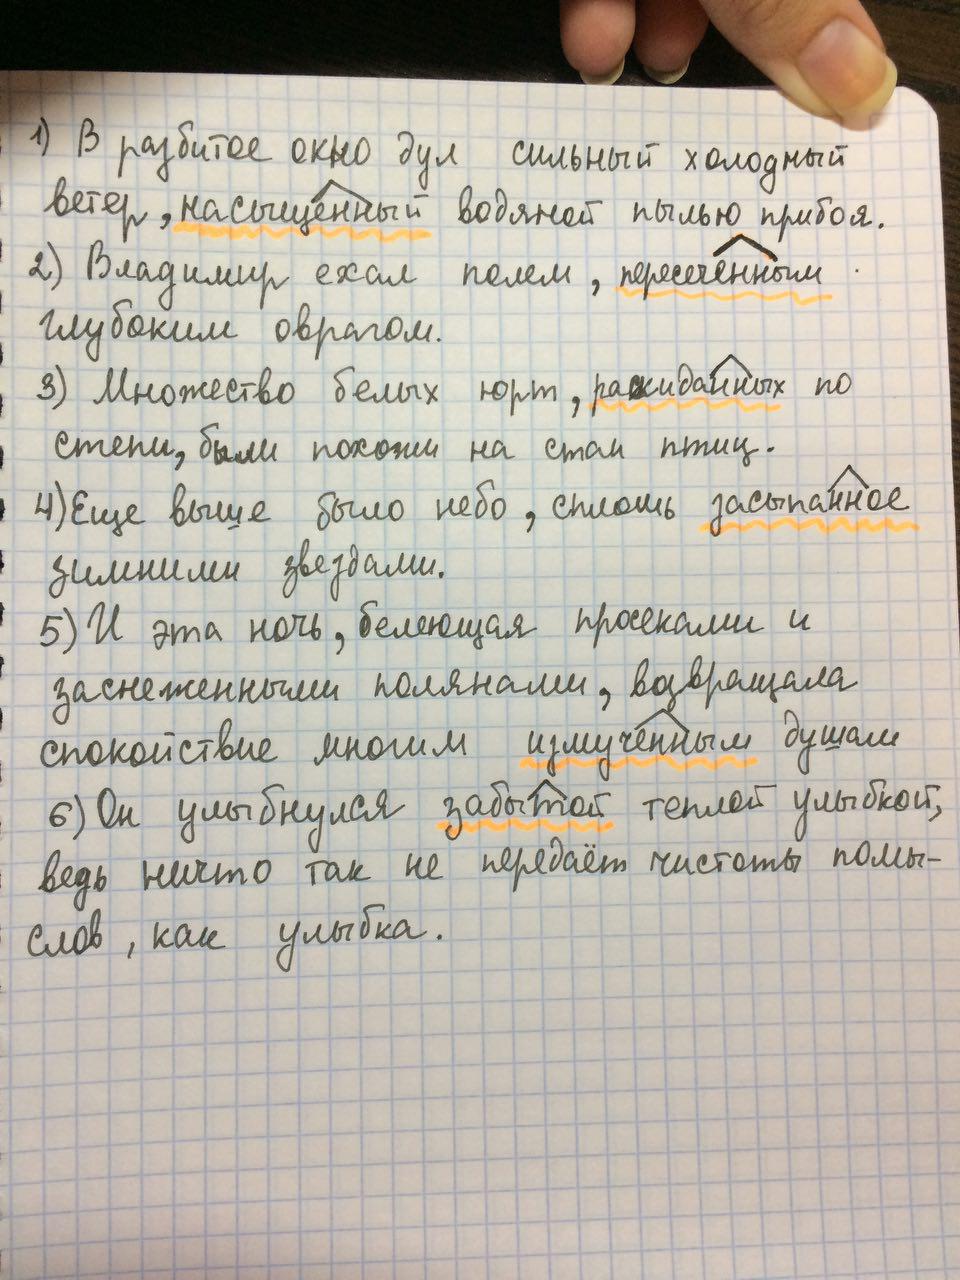 1) В разбитое окно дул сильный холодный
ветер, насыщенный водяной пылью прибоя.
2) Владимир ехал полем, пересеченным
глубоким оврагом.
3) Множество белых юрт, раскиданных по
степи, были похожи на стаи птиц.
4) Еще выше было небо, сплошь засыпанное
зимними звездами.
5) И эта ночь, белеющая просеками и
заснеженными полянами, возвращала
спокойствие многим измученным душам
6) Он улыбнулся забытой теплой улыбкой,
ведь ничто так не передаёт чистоты помы-
слов, как улыбка.